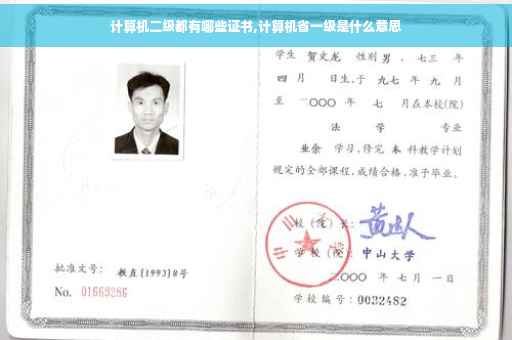 计算机二级都有哪些证书,计算机省一级是什么意思
学生 贺文龙 性别 男 、七三 年
四 月 日生,于 九七 年 九 月
至 二〇〇〇 年 七 月在本校(院)
法 学 专业
业余 学习,修完 本 科教学计划
规定的全部课程,成绩合格,准予毕业。
校(院)长:
学校(院): 中山大学
二〇〇〇 年 七 月 一 日
学校编号:0032482
批准文号: 教直[1993]8号
No. 01669286